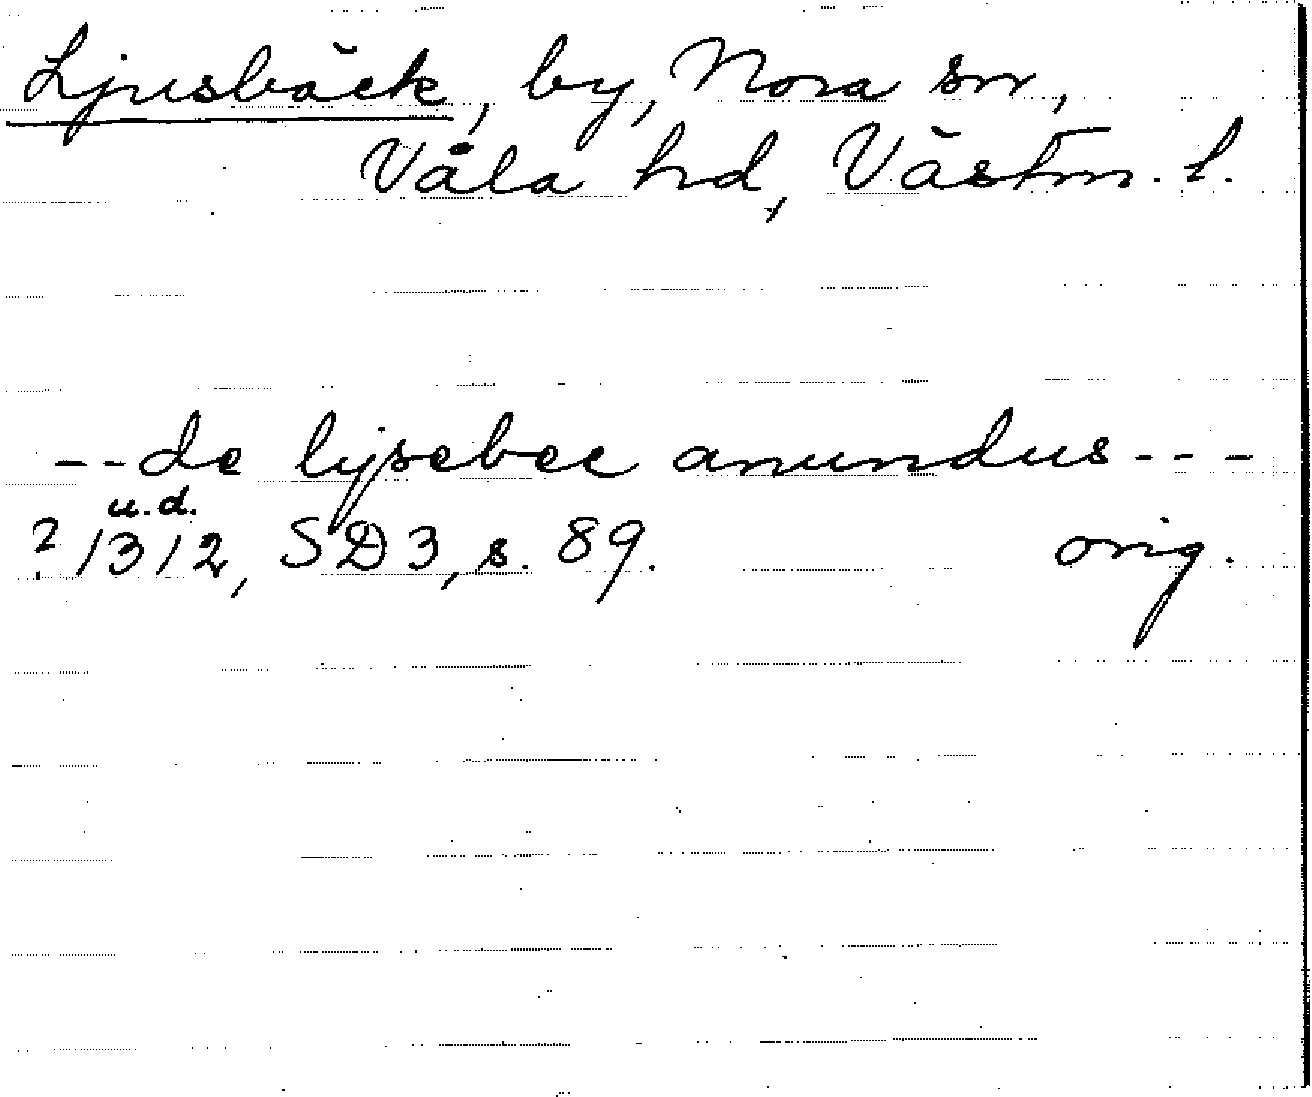 Ljusbäck, by, Nora sn,
Våla hd, Västm. l.
-- de lysebec anundus ---
u.d.
? /1312, SD3, s. 89. orig.